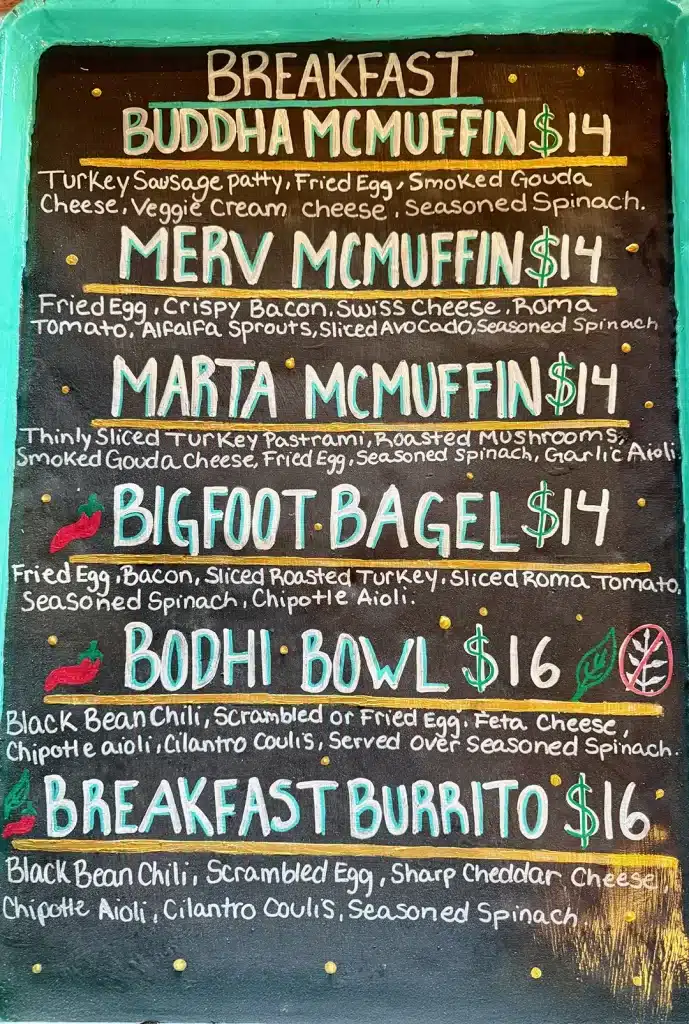 BREAKFAST
BUDDHA MCMUFFIN $14
Turkey Sausage patty, Fried Egg, Smoked Gouda
Cheese, Veggie Cream cheese, Seasoned Spinach.
MERV MCMUFFIN $14
Fried Egg, Crispy Bacon, Swiss Cheese, Roma
Tomato, Alfalfa Sprouts, Sliced Avocado, Seasoned Spinach
MARTA MCMUFFIN $14
Thinly Sliced Turkey Pastrami, Roasted Mushrooms,
Smoked Gouda Cheese, Fried Egg, Seasoned Spinach, Garlic Aioli.
BIGFOOT BAGEL $14
Fried Egg, Bacon, Sliced Roasted Turkey, Sliced Roma Tomato,
Seasoned Spinach, Chipotle Aioli.
BODHI BOWL $16
Black Bean Chili, Scrambled or Fried Egg, Feta Cheese,
Chipotle aioli, Cilantro Coulis, Served Over Seasoned Spinach.
BREAKFAST BURRITO $16
Black Bean Chili, Scrambled Egg, Sharp Cheddar Cheese,
Chipotle Aioli, Cilantro Coulis, Seasoned Spinach